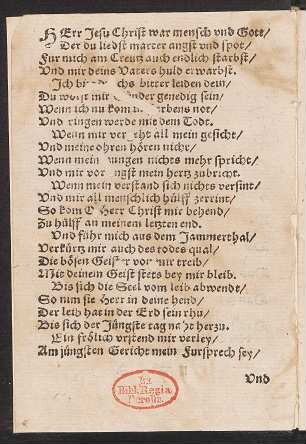 HErr Jesu Christ war mensch vnd Gott/
Der du liedst marter angst vnd spot/
Fur mich am Creutz auch endlich starbst/
Vnd mir deins Vaters huld erwarbst.
Ich bi chs bitter leiden dein/
Du w mir nder genedig sein/
Wenn ich nu kom rbens not/
Vnd ringen werde mit dem Todt.
Wenn mir ver eht all mein gesicht/
Vnd meine ohren hören nicht/
Wenn mein ungen nichts mehr spricht/
Vnd mir vor ngst mein hertz zubricht.
Wenn mein verstand sich nichts versint/
Vnd mir all menschlich hülff zerrint/
So kom O Herr Christ mir behend/
Zu hülff an meinem letzten end.
Vnd führ mich aus dem Jammerthal/
Verkürtz mir auch des todes qual/
Die bösen Geister von mir treib/
Mit deinem Geist stets bey mir bleib.
Bis sich die Seel vom leib abwendt/
So nim sie Herr in deine hend/
Der leib hat in der Erd sein rhu/
Bis sich der Jüngste tag naht herzu.
Ein frölich vrstend mir verley/
Am jüngsten Gericht mein Fursprech sey/
Vnd
Bibl. Regia